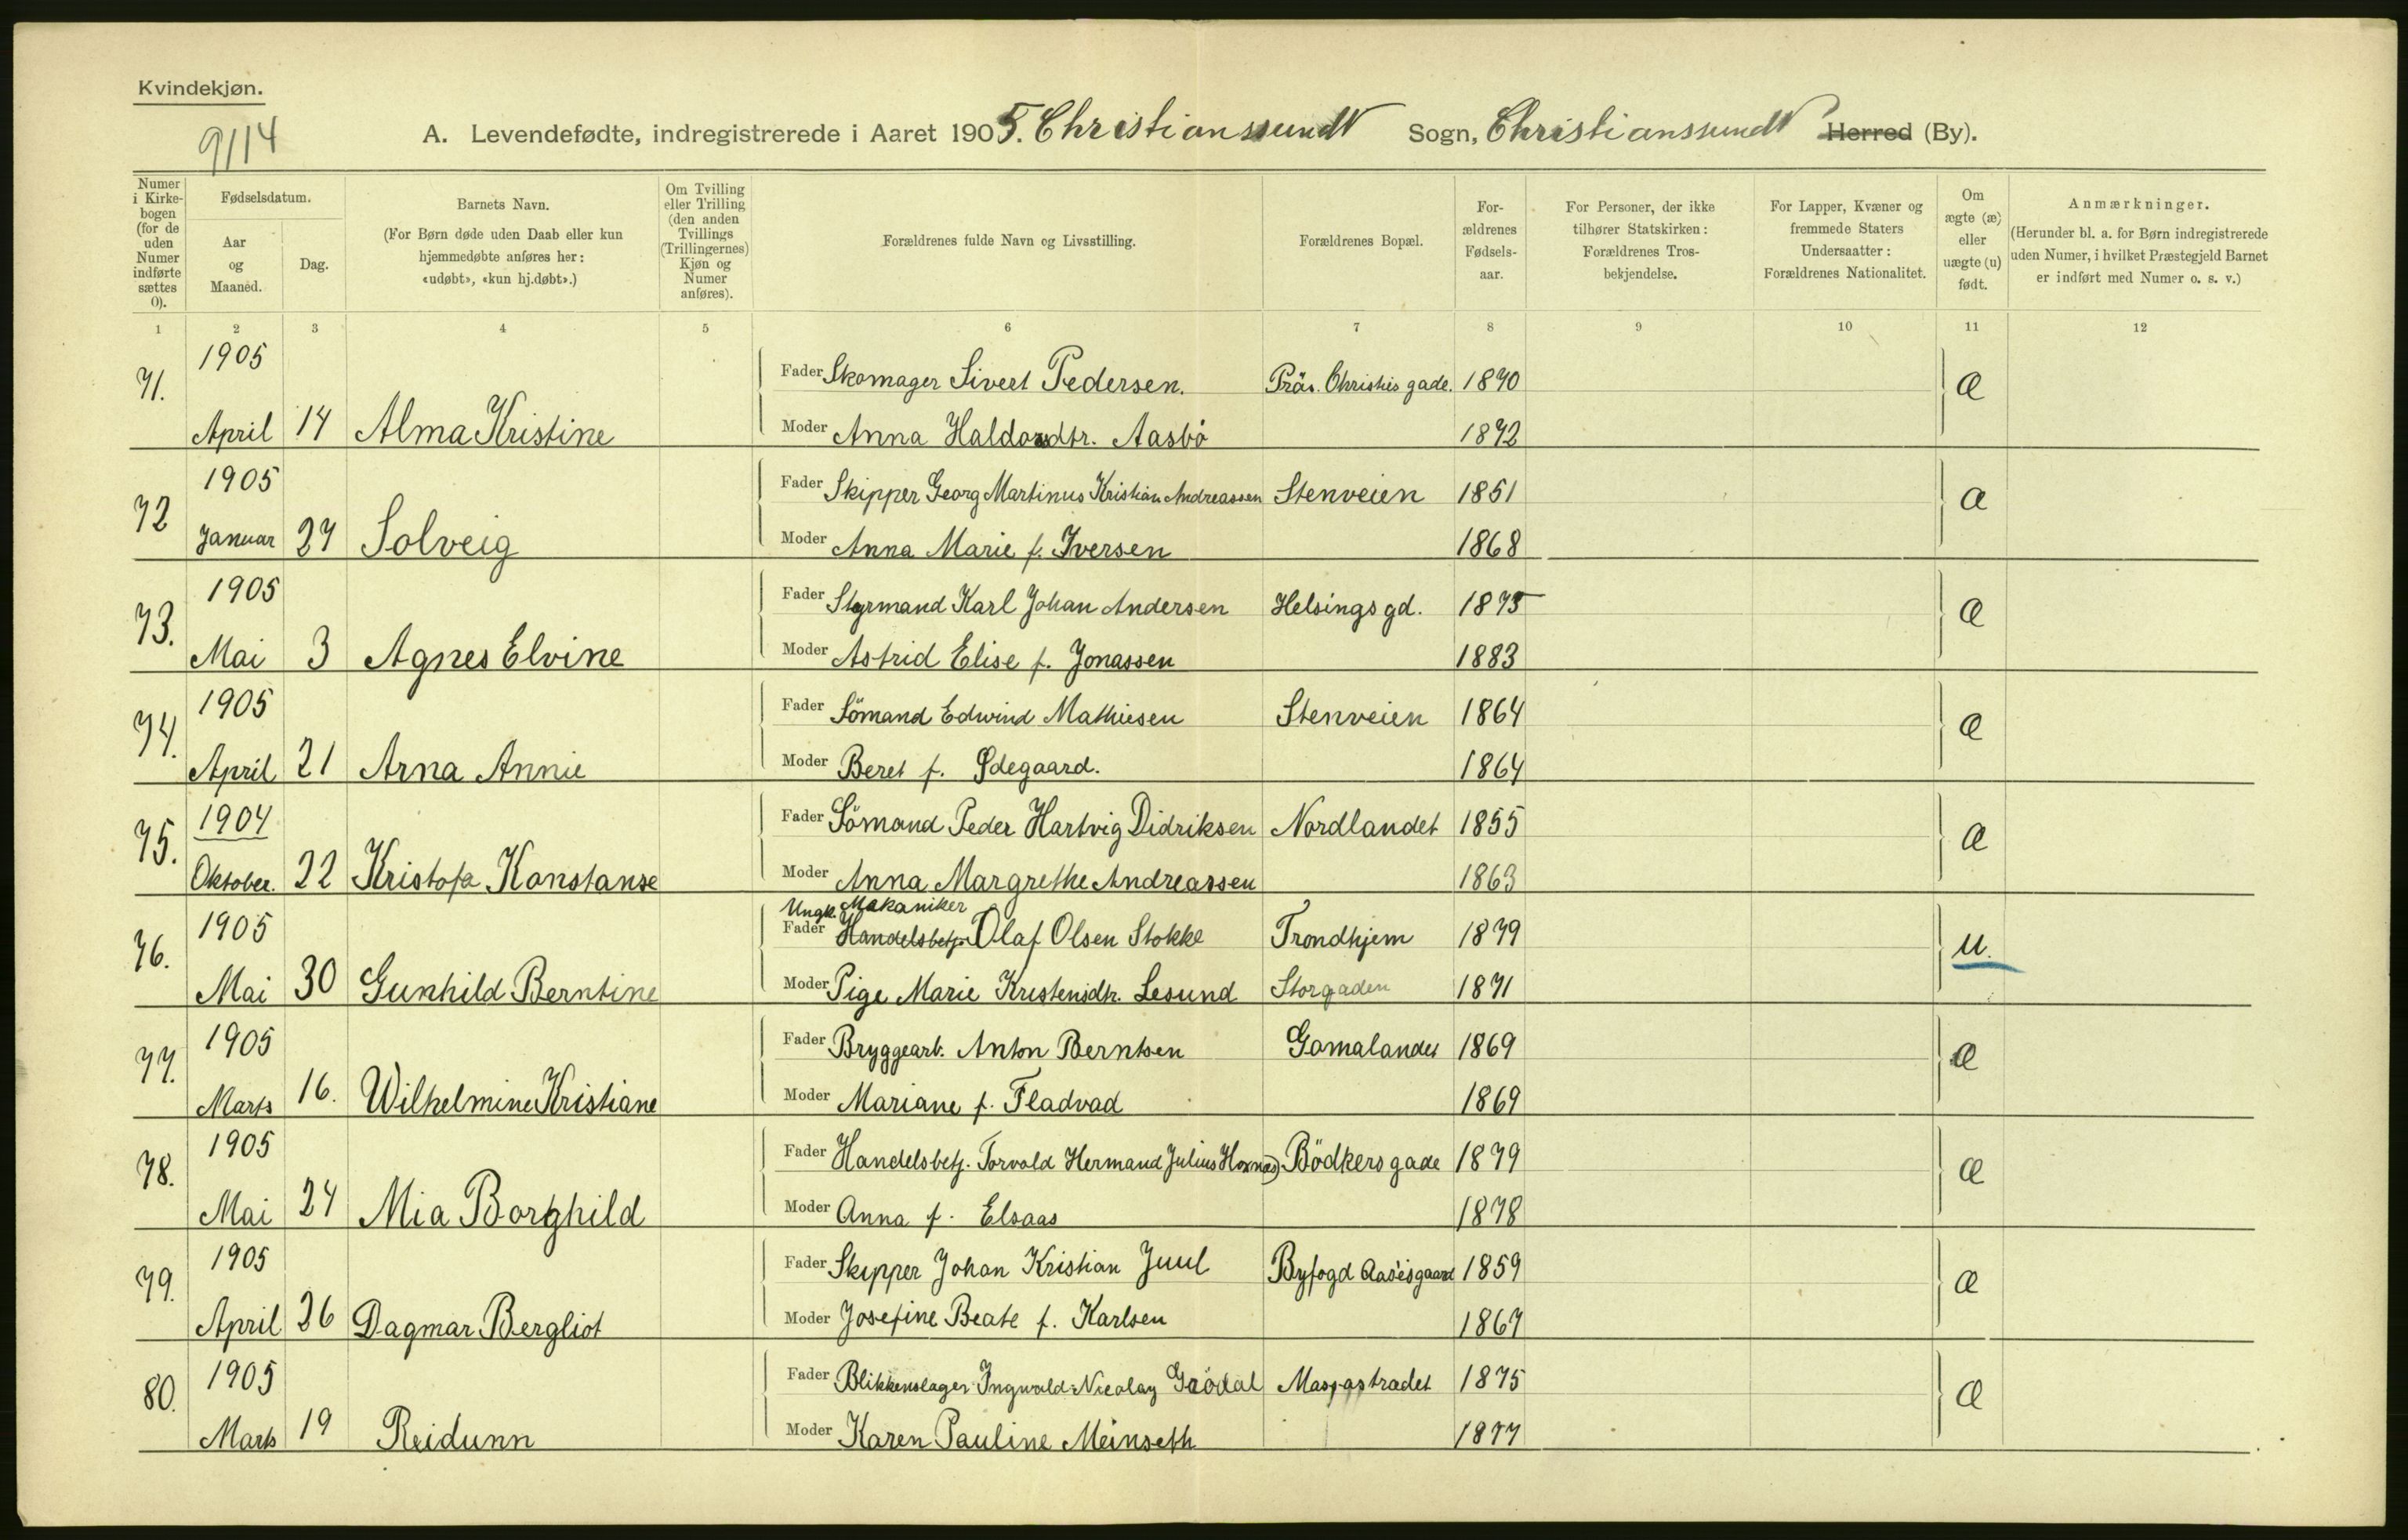 Kvindekjøn.
9114
A. Levendefødte, indregistrerede i Aaret 1905. Christianssund N Sogn, Christianssund N Herred (By).
Numer i Kirkebogen (for de uden Numer indførte sættes 0).
Fødselsdatum.
Aar og Maaned.
Dag.
Barnets Navn.
(For Børn døde uden Daab eller kun hjemmedøbte anføres her: «udøbt», «kun hj.døbt».)
Om Tvilling eller Trilling (den anden Tvillings (Trillingernes) Kjøn og Numer anføres).
Forældrenes fulde Navn og Livsstilling.
Forældrenes Bopæl.
Forældrenes Fødselsaar.
For Personer, der ikke tilhører Statskirken: Forældrenes Trosbekjendelse.
For Lapper, Kvæner og fremmede Staters Undersaatter: Forældrenes Nationalitet.
Om ægte (æ) eller uægte (u) født.
Anmærkninger.
(Herunder bl. a. for Børn indregistrerede uden Numer, i hvilket Præstegjeld Barnet er indført med Numer o. s. v.)
1 2 3 4 5 6 7 8 9 10 11 12
71. 1905 Fader Skomager Sivert Pedersen. Präs. Christies gade. 1870 Æ
April 14 Alma Kristine Moder Anna Haldorsdtr. Aasbö 1872
72 1905 Fader Skipper Georg Martinus Kristian Andreassen Stenveien 1851 Æ
Januar 27 Solveig Moder Anna Marie f. Iversen 1868
73. 1905 Fader Styrmand Karl Johan Andersen Helsings gd. 1875 Æ
Mai 3 Agnes Elvine Moder Astrid Elise f. Jonassen 1883
74. 1905 Fader Sömand Edwind Mathiesen Stenveien 1864 Æ
April 21 Arna Annie Moder Beret f. Ødegaard. 1864
75. 1904 Fader Sömand Peder Hartvig Didriksen Nordlandet 1855 Æ
Oktober. 22 Kristofa Konstanse Moder Anna Margrethe Andreassen 1863
Ungk. Mekaniker
76. 1905 Fader Handelsbetj. Olaf Olsen Stokke Trondhjem 1879 U.
Mai 30 Gunhild Berntine Moder Pige Marie Kristensdtr. Lesund Storgaden 1871
77. 1905 Fader Bryggearb. Anton Berntsen Gomalandet 1869 Æ
Marts 16. Wilhelmine Kristiane Moder Mariane f. Fladvad 1869
78. 1905 Fader Handelsbetj. Torvald Hermand Julius Hoxnæs Bödkers gade 1879 Æ
Mai 24 Mia Borghild Moder Anna f. Elsaas 1878
79. 1905 Fader Skipper Johan Kristian Juul Byfogd Aas'isgaard 1859 Æ
April 26 Dagmar Bergliot Moder Josefine Beate f. Karlsen 1867
80. 1905 Fader Blikkenslager Ingvald Nicolay Grödal 1875 Æ
Marts 19 Reidunn Moder Karen Pauline Meinseth 1877